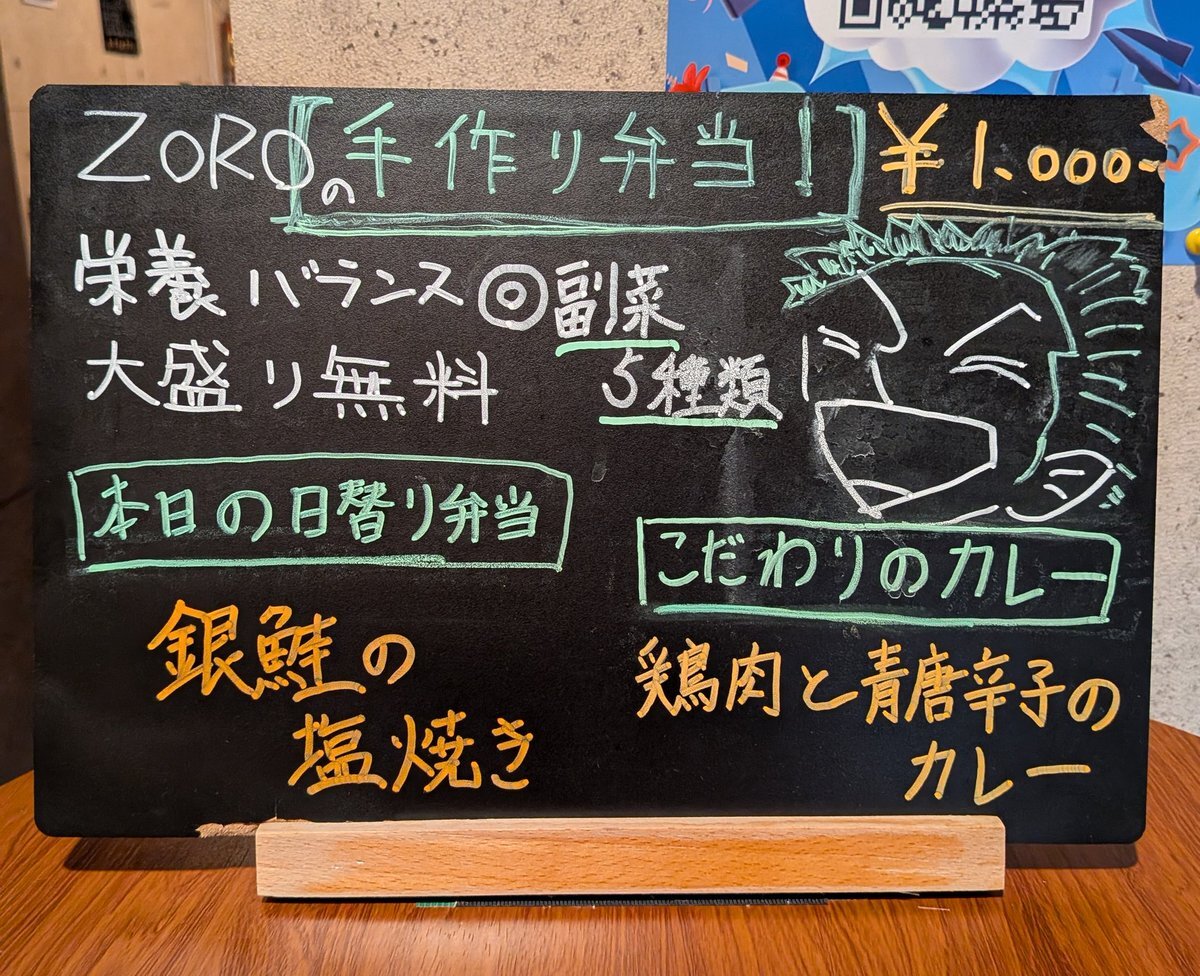 ZOROの手作り弁当! ¥1.000-
栄養バランス◎副菜
大盛り無料 5種類
本日の日替り弁当
銀鮭の
塩焼き
こだわりのカレー
鶏肉と青唐辛子の
カレー